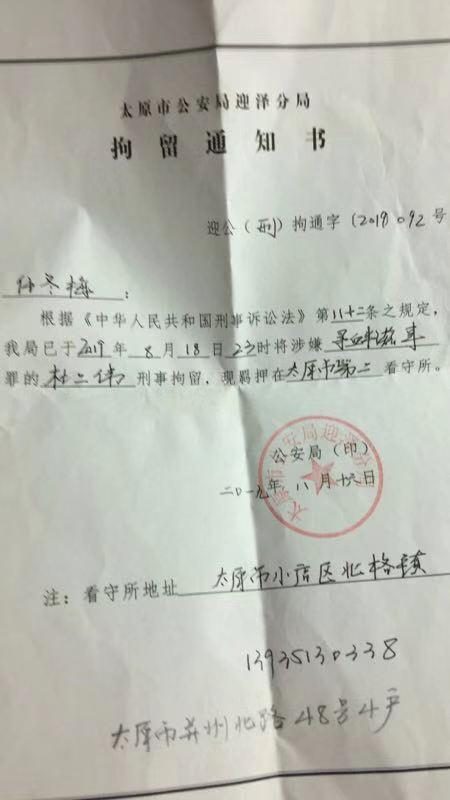 太原市公安局迎泽分局
拘 留 通 知 书
迎公（刑）拘通字〔2019〕092号
孙冬梅：
根据《中华人民共和国刑事诉讼法》第八十二条之规定，
我局已于2019年8月18日23时将涉嫌寻衅滋事
罪的杜二伟刑事拘留，现羁押在太原市第二看守所。
公安局（印）
二〇一九年八月十八日
太原市公安局迎泽分局
注：看守所地址 太原市小店区北格镇
13935130338
太原市并州北路48号4户